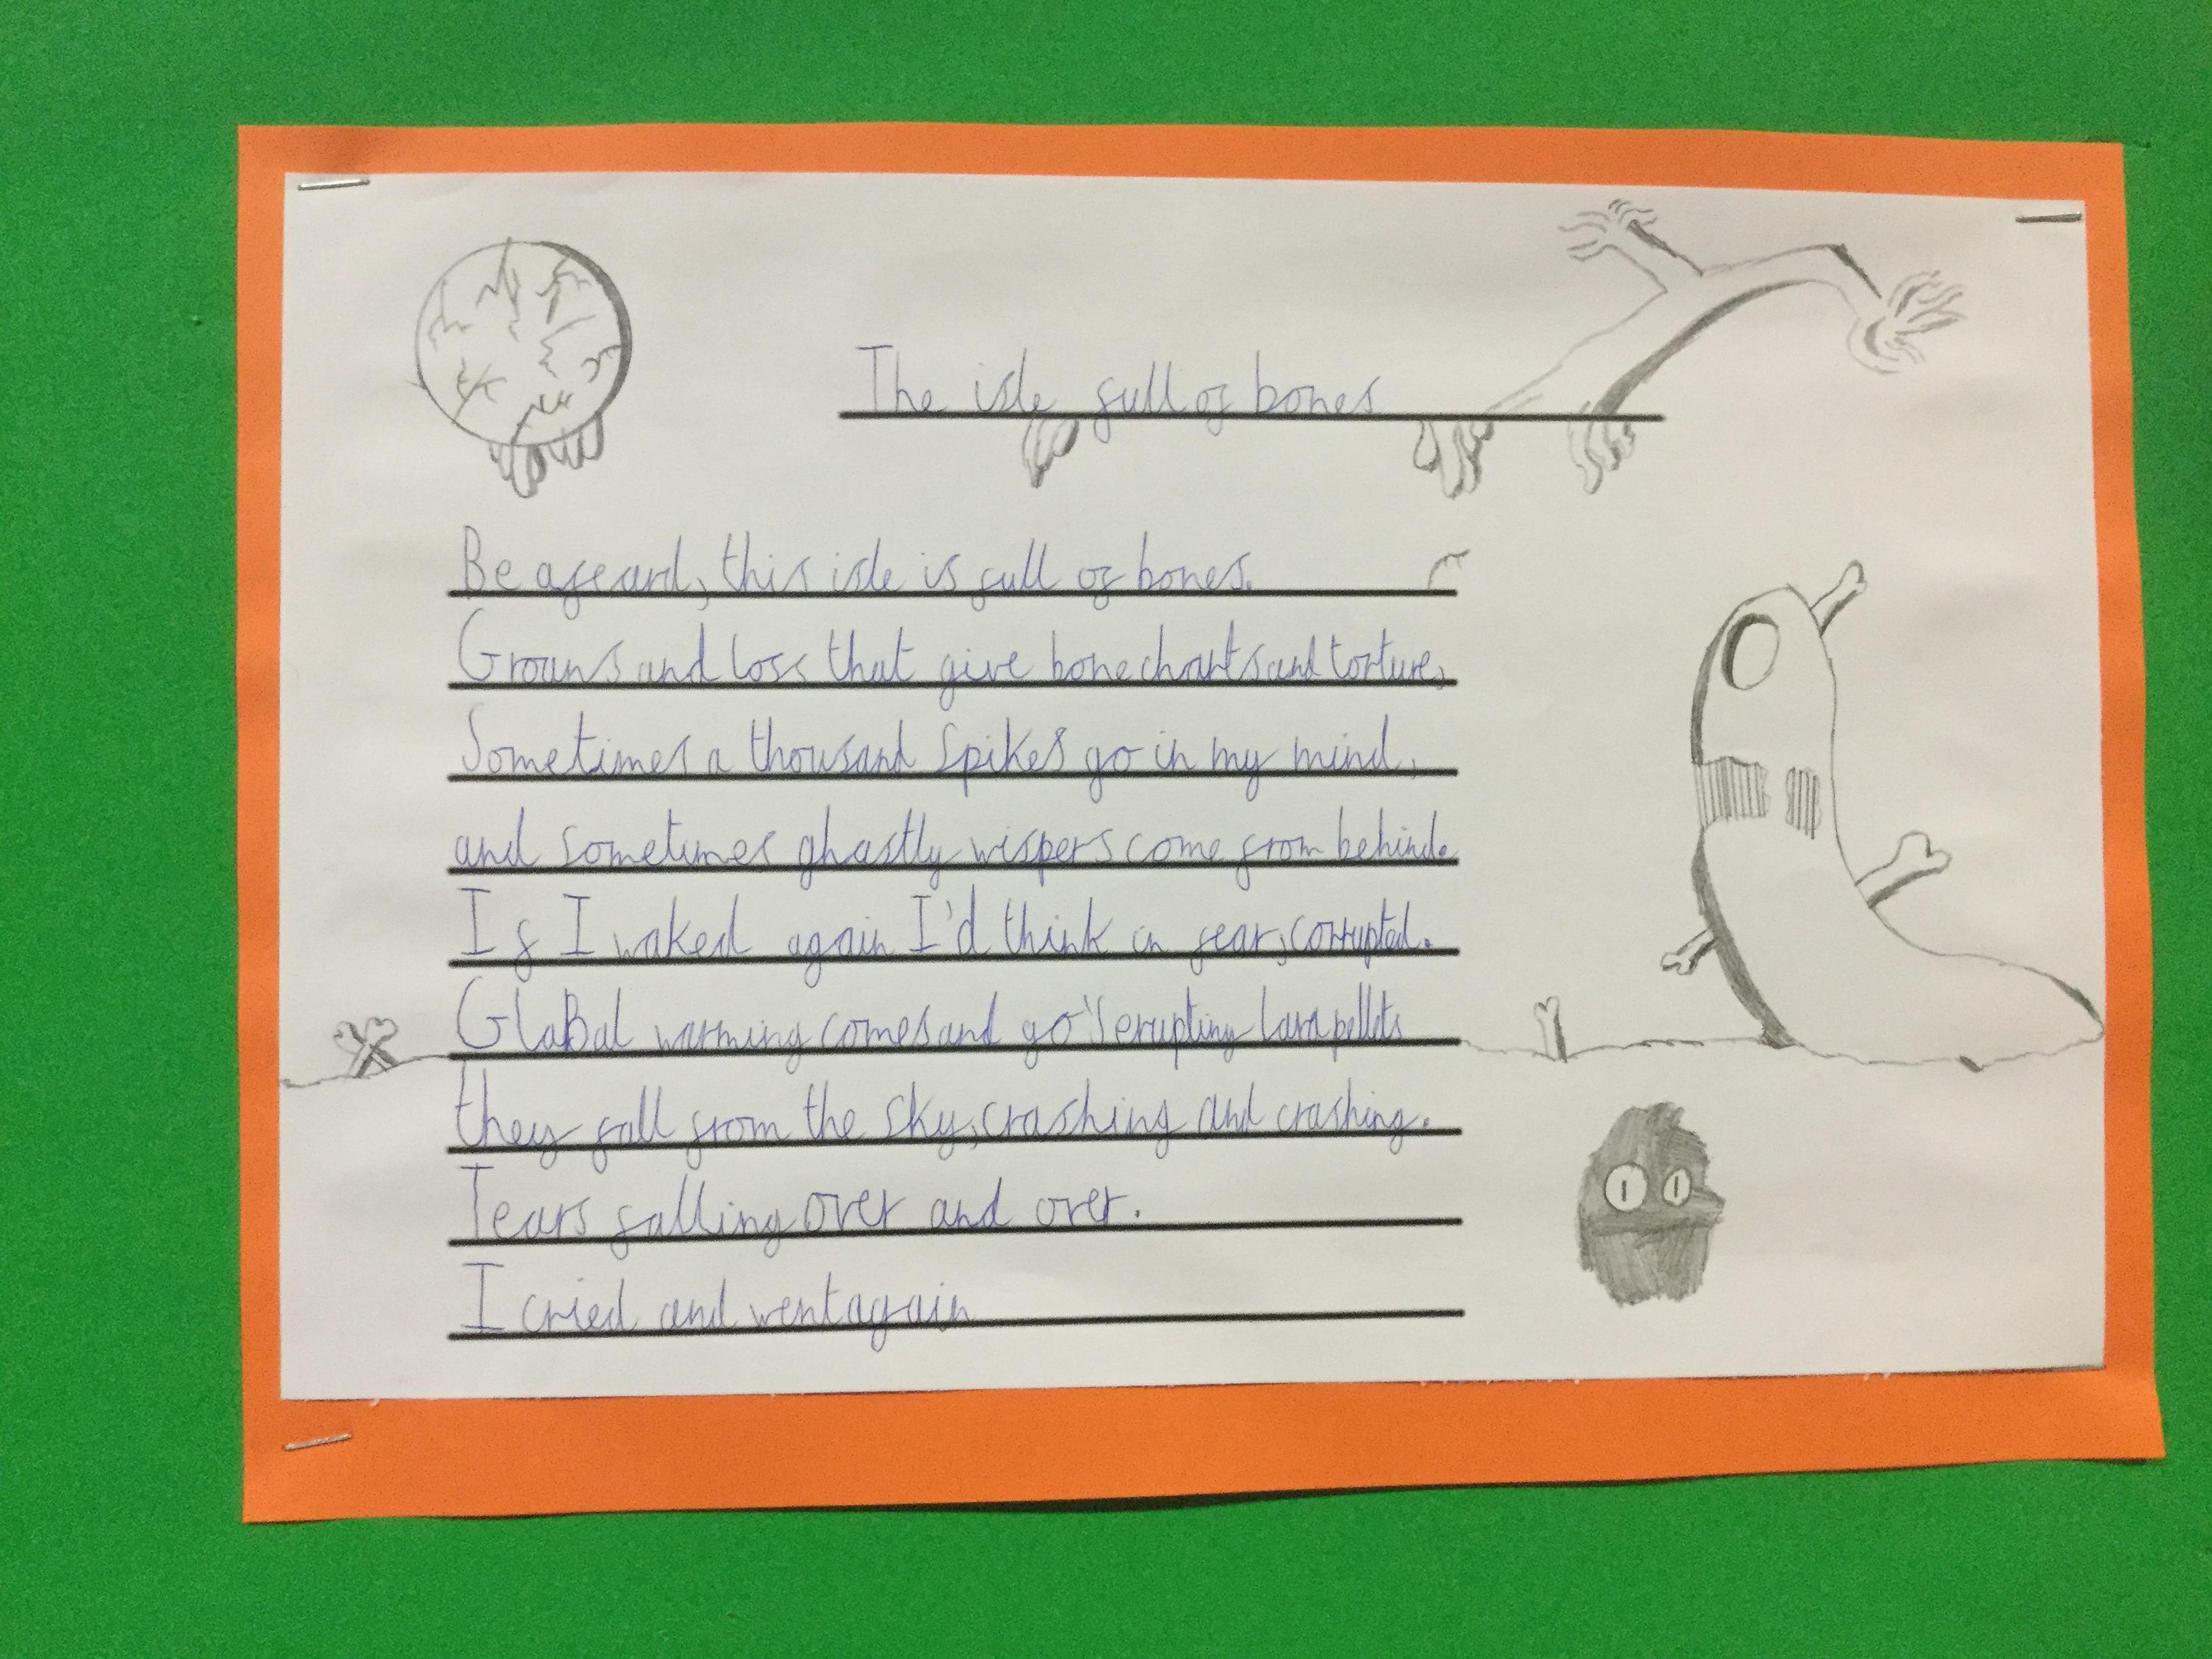 The isle full of bones
Be afeard, this isle is full of bones.
Groans and loss that give bone charts and torture,
Sometimes a thousand spikes go in my mind,
and sometimes ghastly wispers come from behind.
If I waked again I'd think in fear, corrupted.
GlaBal warming comes and go's erupting lava pellets
they fall from the sky, crashing and crashing.
Tears falling over and over.
I cried and went again